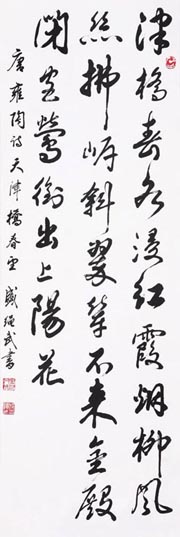 津橋春水浸紅霞烟柳風
絲拂岸斜翠輦不来金殿
閉宮鶯銜出上陽花
唐雍陶诗天津橋春望 武書